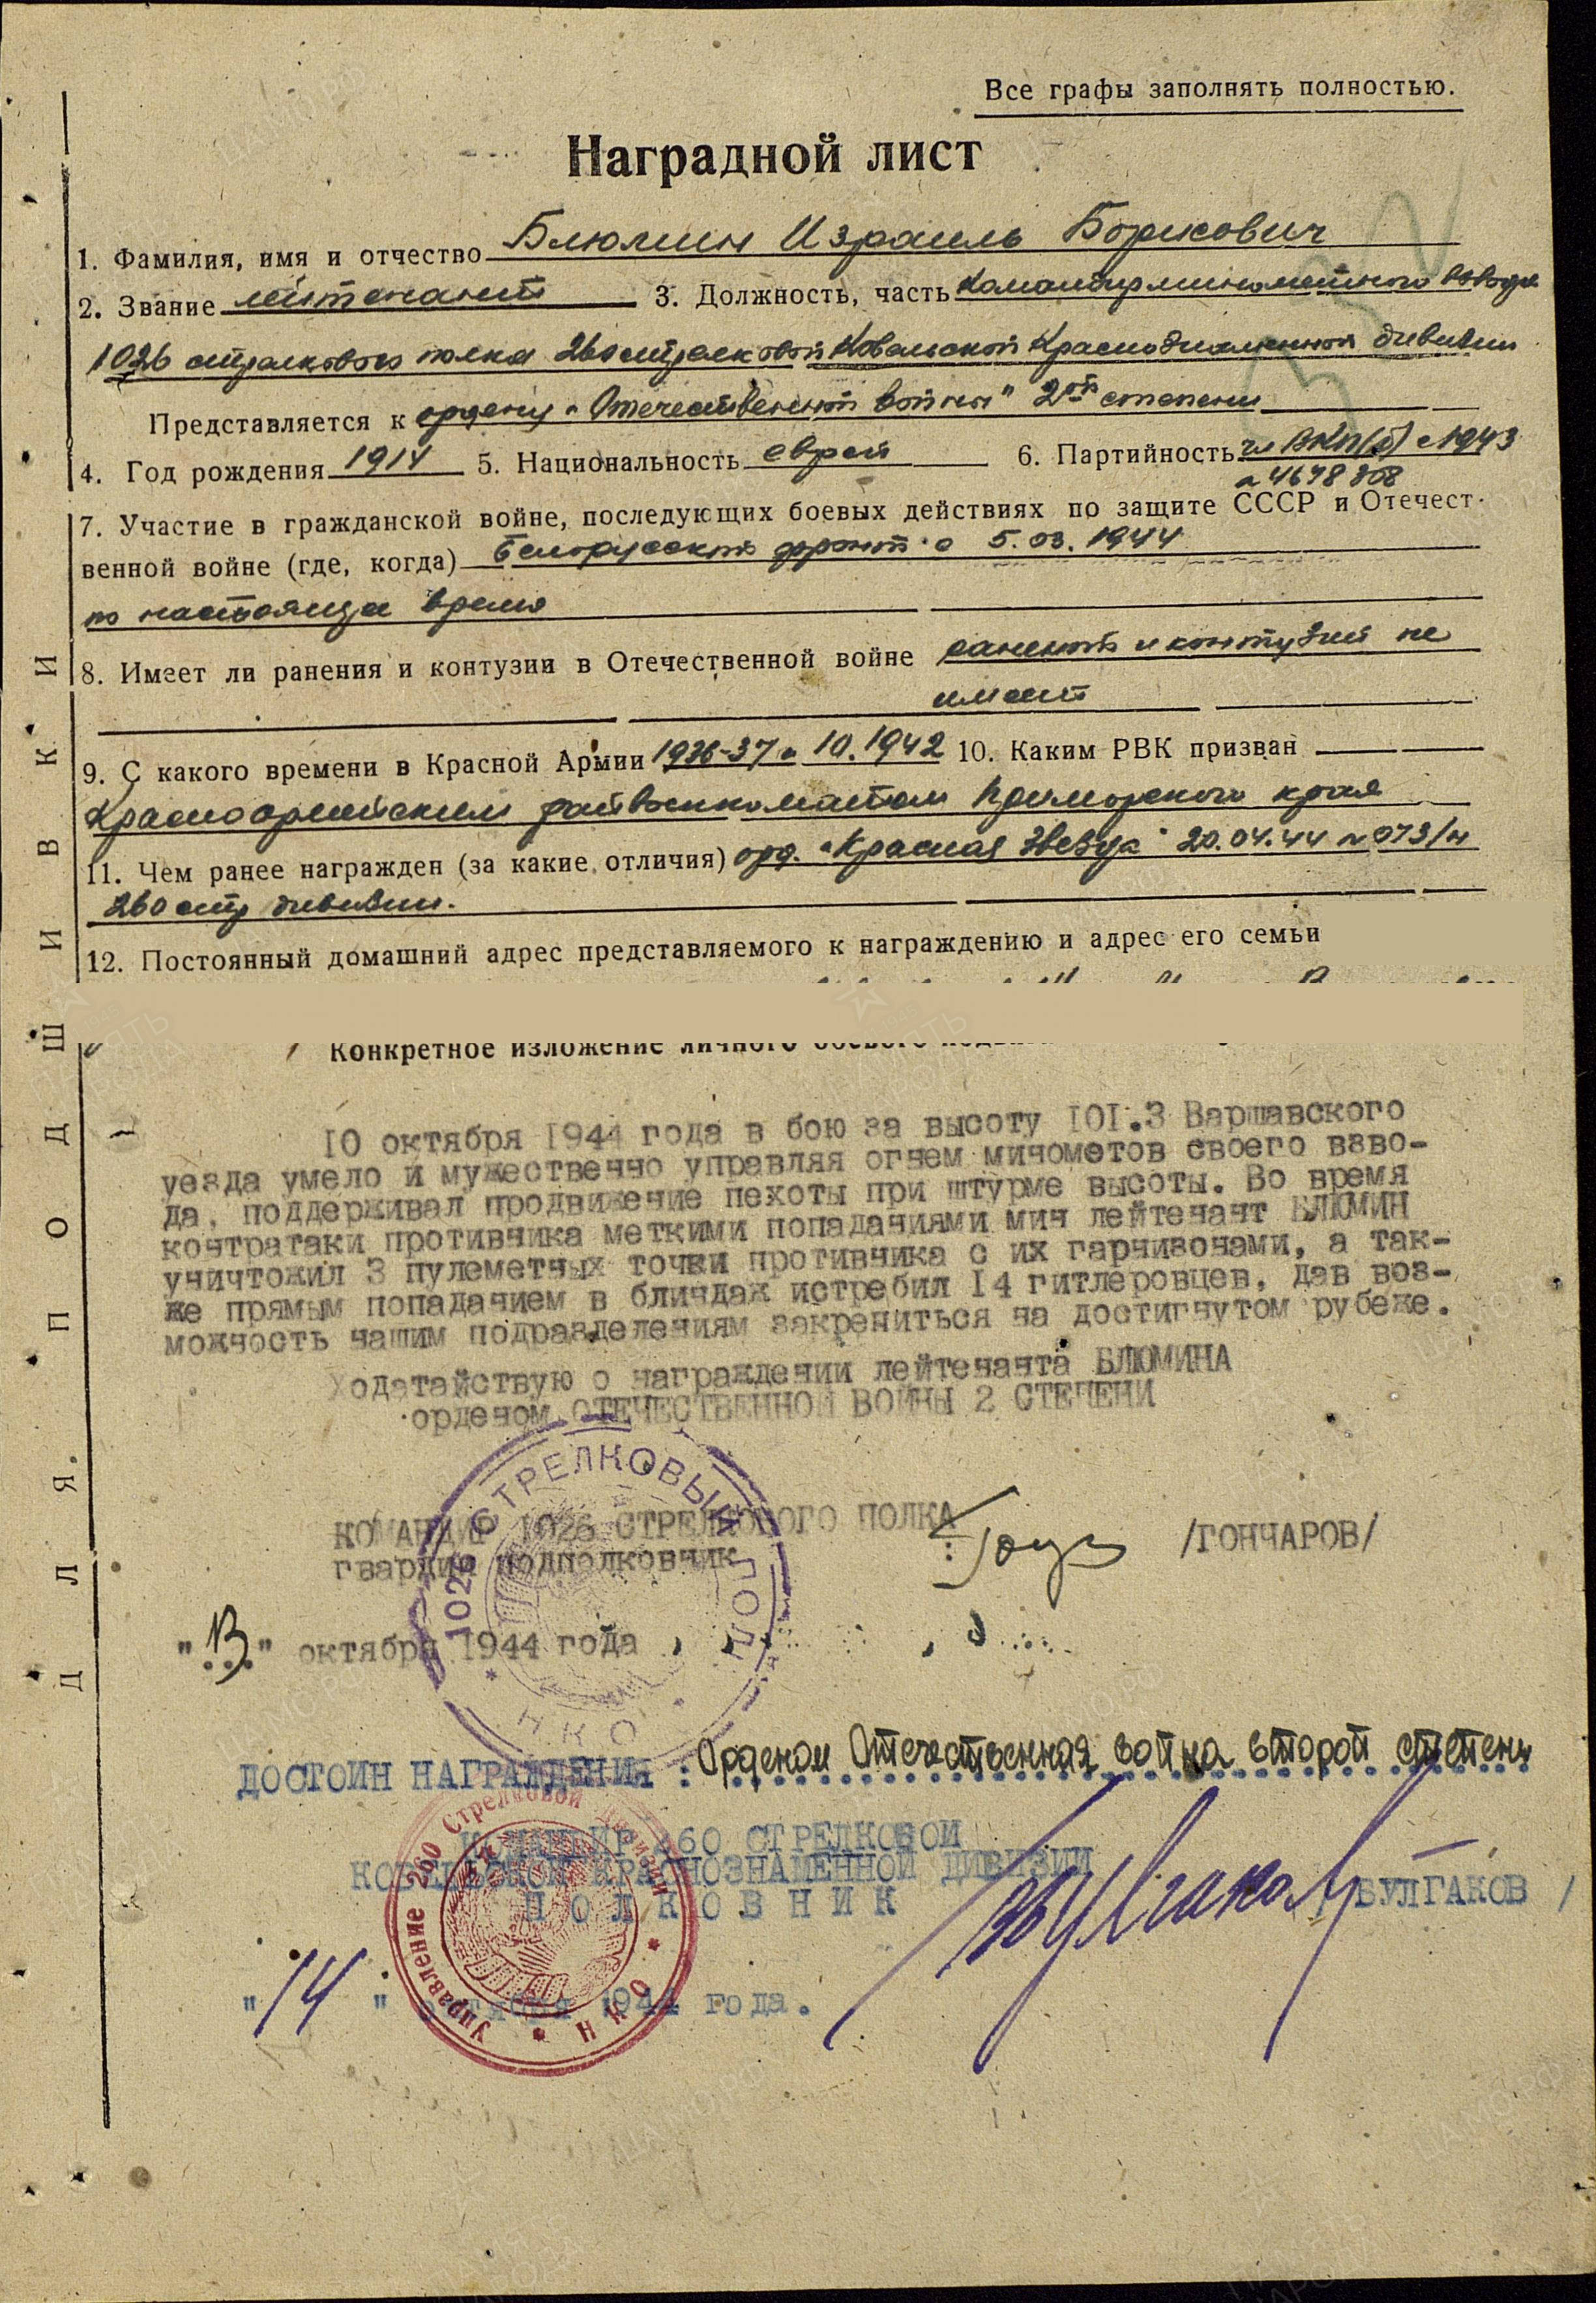 Все графы заполнять полностью.
Наградной лист
1. Фамилия, имя и отчество Блюмин Израиль Борисович
2. Звание лейтенант 3. Должность, часть Командир минометного взвода
1026 стрелкового полка 260 стрелковой Ковельской Краснознаменной дивизии
Представляется к ордену "Отечественной войны" 2ой степени
4. Год рождения 1914 5. Национальность еврей 6. Партийность чл ВКП(б) с 1943
№ 4678308
7. Участие в гражданской войне, последующих боевых действиях по защите СССР и Отечест-
венной войне (где, когда) Белорусский фронт с 5.03.1944
по настояще время
8. Имеет ли ранения и контузии в Отечественной войне ранений и контузий не
имеет
9. С какого времени в Красной Армии 1936-37 и 10.1942 10. Каким РВК призван
Красноармейским райвоенкоматом Приморского края
11. Чем ранее награжден (за какие отличия) орд. "Красная Звезда" 20.04.44 № 073/н
260 стр дивизии.
12. Постоянный домашний адрес представляемого к награждению и адрес его семьи
Конкретное изложение личного боевого
10 октября 1944 года в бою за высоту 101.3 Варшавского
уезда умело и мужественно управляя огнем минометов своего взво-
да, поддерживал продвижение пехоты при штурме высоты. Во время
контратаки противника меткими попаданиями мин лейтенант БЛЮМИН
уничтожил 3 пулеметных точки противника с их гарнизонами, а так-
же прямым попаданием в блиндаж истребил 14 гитлеровцев, дав воз-
можность нашим подразделениям закрениться на достигнутом рубеже.
Ходатайствую о награждении лейтенанта БЛЮМИНА
орденом ОТЕЧЕСТВЕННОЙ ВОЙНЫ 2 СТЕПЕНИ
КОМАНДИР 1026 СТРЕЛКОВОГО ПОЛКА
гвардии подполковник /ГОНЧАРОВ/
1026 СТРЕЛКОВЫЙ ПОЛК
* НКО *
"13" октября 1944 года
ДОСТОИН НАГРАЖДЕНИЯ: Орденом Отечественная война второй степени
КОМАНДИР 260 СТРЕЛКОВОЙ
КОВЕЛЬСКОЙ КРАСНОЗНАМЕННОЙ ДИВИЗИИ
ПОЛКОВНИК Булгаков /БУЛГАКОВ/
Управление 260 Стрелковой Дивизии
* НКО *
"14" октября 1944 года.
ДЛЯ ПОДШИВКИ